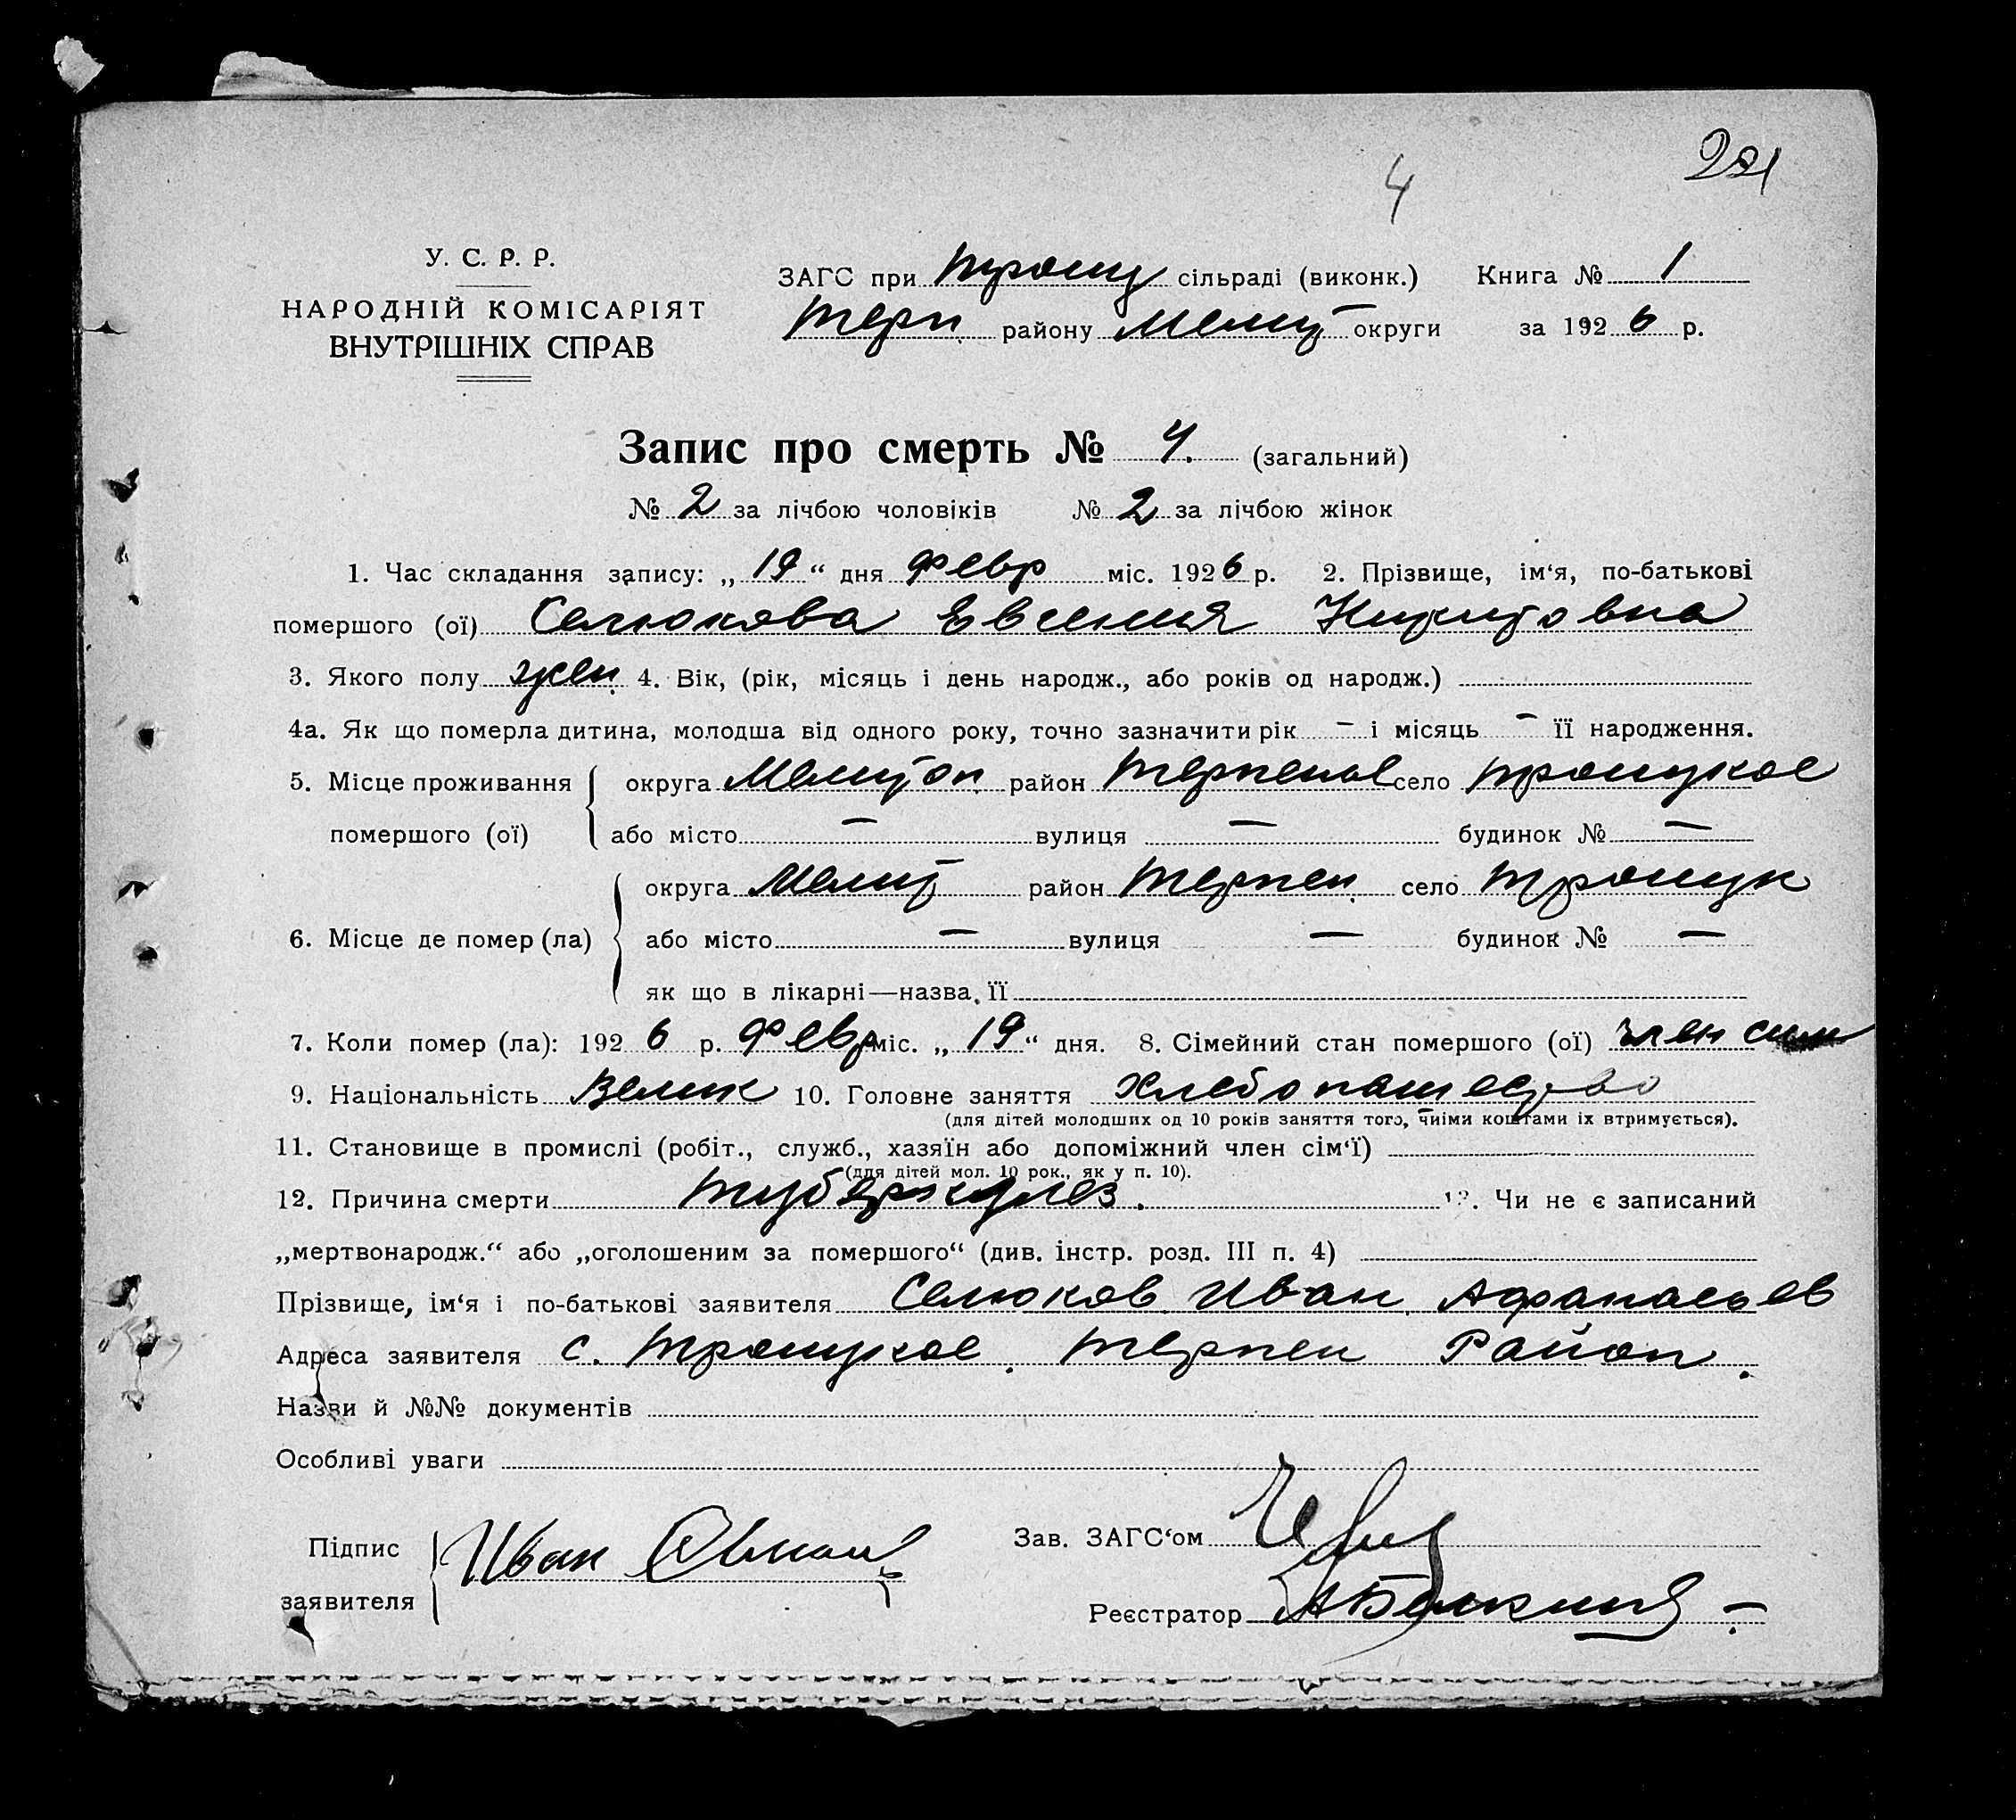 221
4
У. С. Р. Р.
НАРОДНІЙ КОМІСАРІЯТ
ВНУТРІШНІХ СПРАВ
ЗАГС при Троиц сільраді (виконк.) Книга № 1
Терп. району Мелит округи за 1926 р.
Запис про смерть № 4. (загальний)
№ 2 за лічбою чоловіків № 2 за лічбою жінок
1. Час складання запису: „19“ дня Февр міс. 1926 р. 2. Прізвище, ім‘я, по-батькові
помершого (ої) Селюкова Евгения Никитовна
3. Якого полу жен. 4. Вік, (рік, місяць і день народж., або років од народж.)
4а. Як що померла дитина, молодша від одного року, точно зазначити рік – і місяць – її народження.
5. Місце проживання округа Мелитоп. район Терпенье село Троицкое
помершого (ої) або місто — вулиця — будинок № —
округа Мелит район Терпен. село Троицк
6. Місце де помер (ла) або місто — вулиця — будинок № —
як що в лікарні—назва її
7. Коли помер (ла): 1926 р. Февр міс. „19“ дня. 8. Сімейний стан помершого (ої) член сим
9. Національність Велик 10. Головне заняття Хлебопашество
(для дітей молодших од 10 років заняття того, чиїми коштами їх втримується).
11. Становище в промислі (робіт., служб., хазяїн або допоміжний член сім‘ї)
(для дітей мол. 10 рок., як у п. 10).
12. Причина смерти туберкулез. 13. Чи не є записаний
„мертвонародж.“ або „оголошеним за помершого“ (див. інстр. розд. III п. 4)
Прізвище, ім‘я і по-батькові заявителя Селюков Иван Афанасьев
Адреса заявителя с. Троицкое. Терпен Район.
Назви й №№ документів
Особливі уваги
Підпис
заявителя Иван
Зав. ЗАГС‘ом
Реєстратор